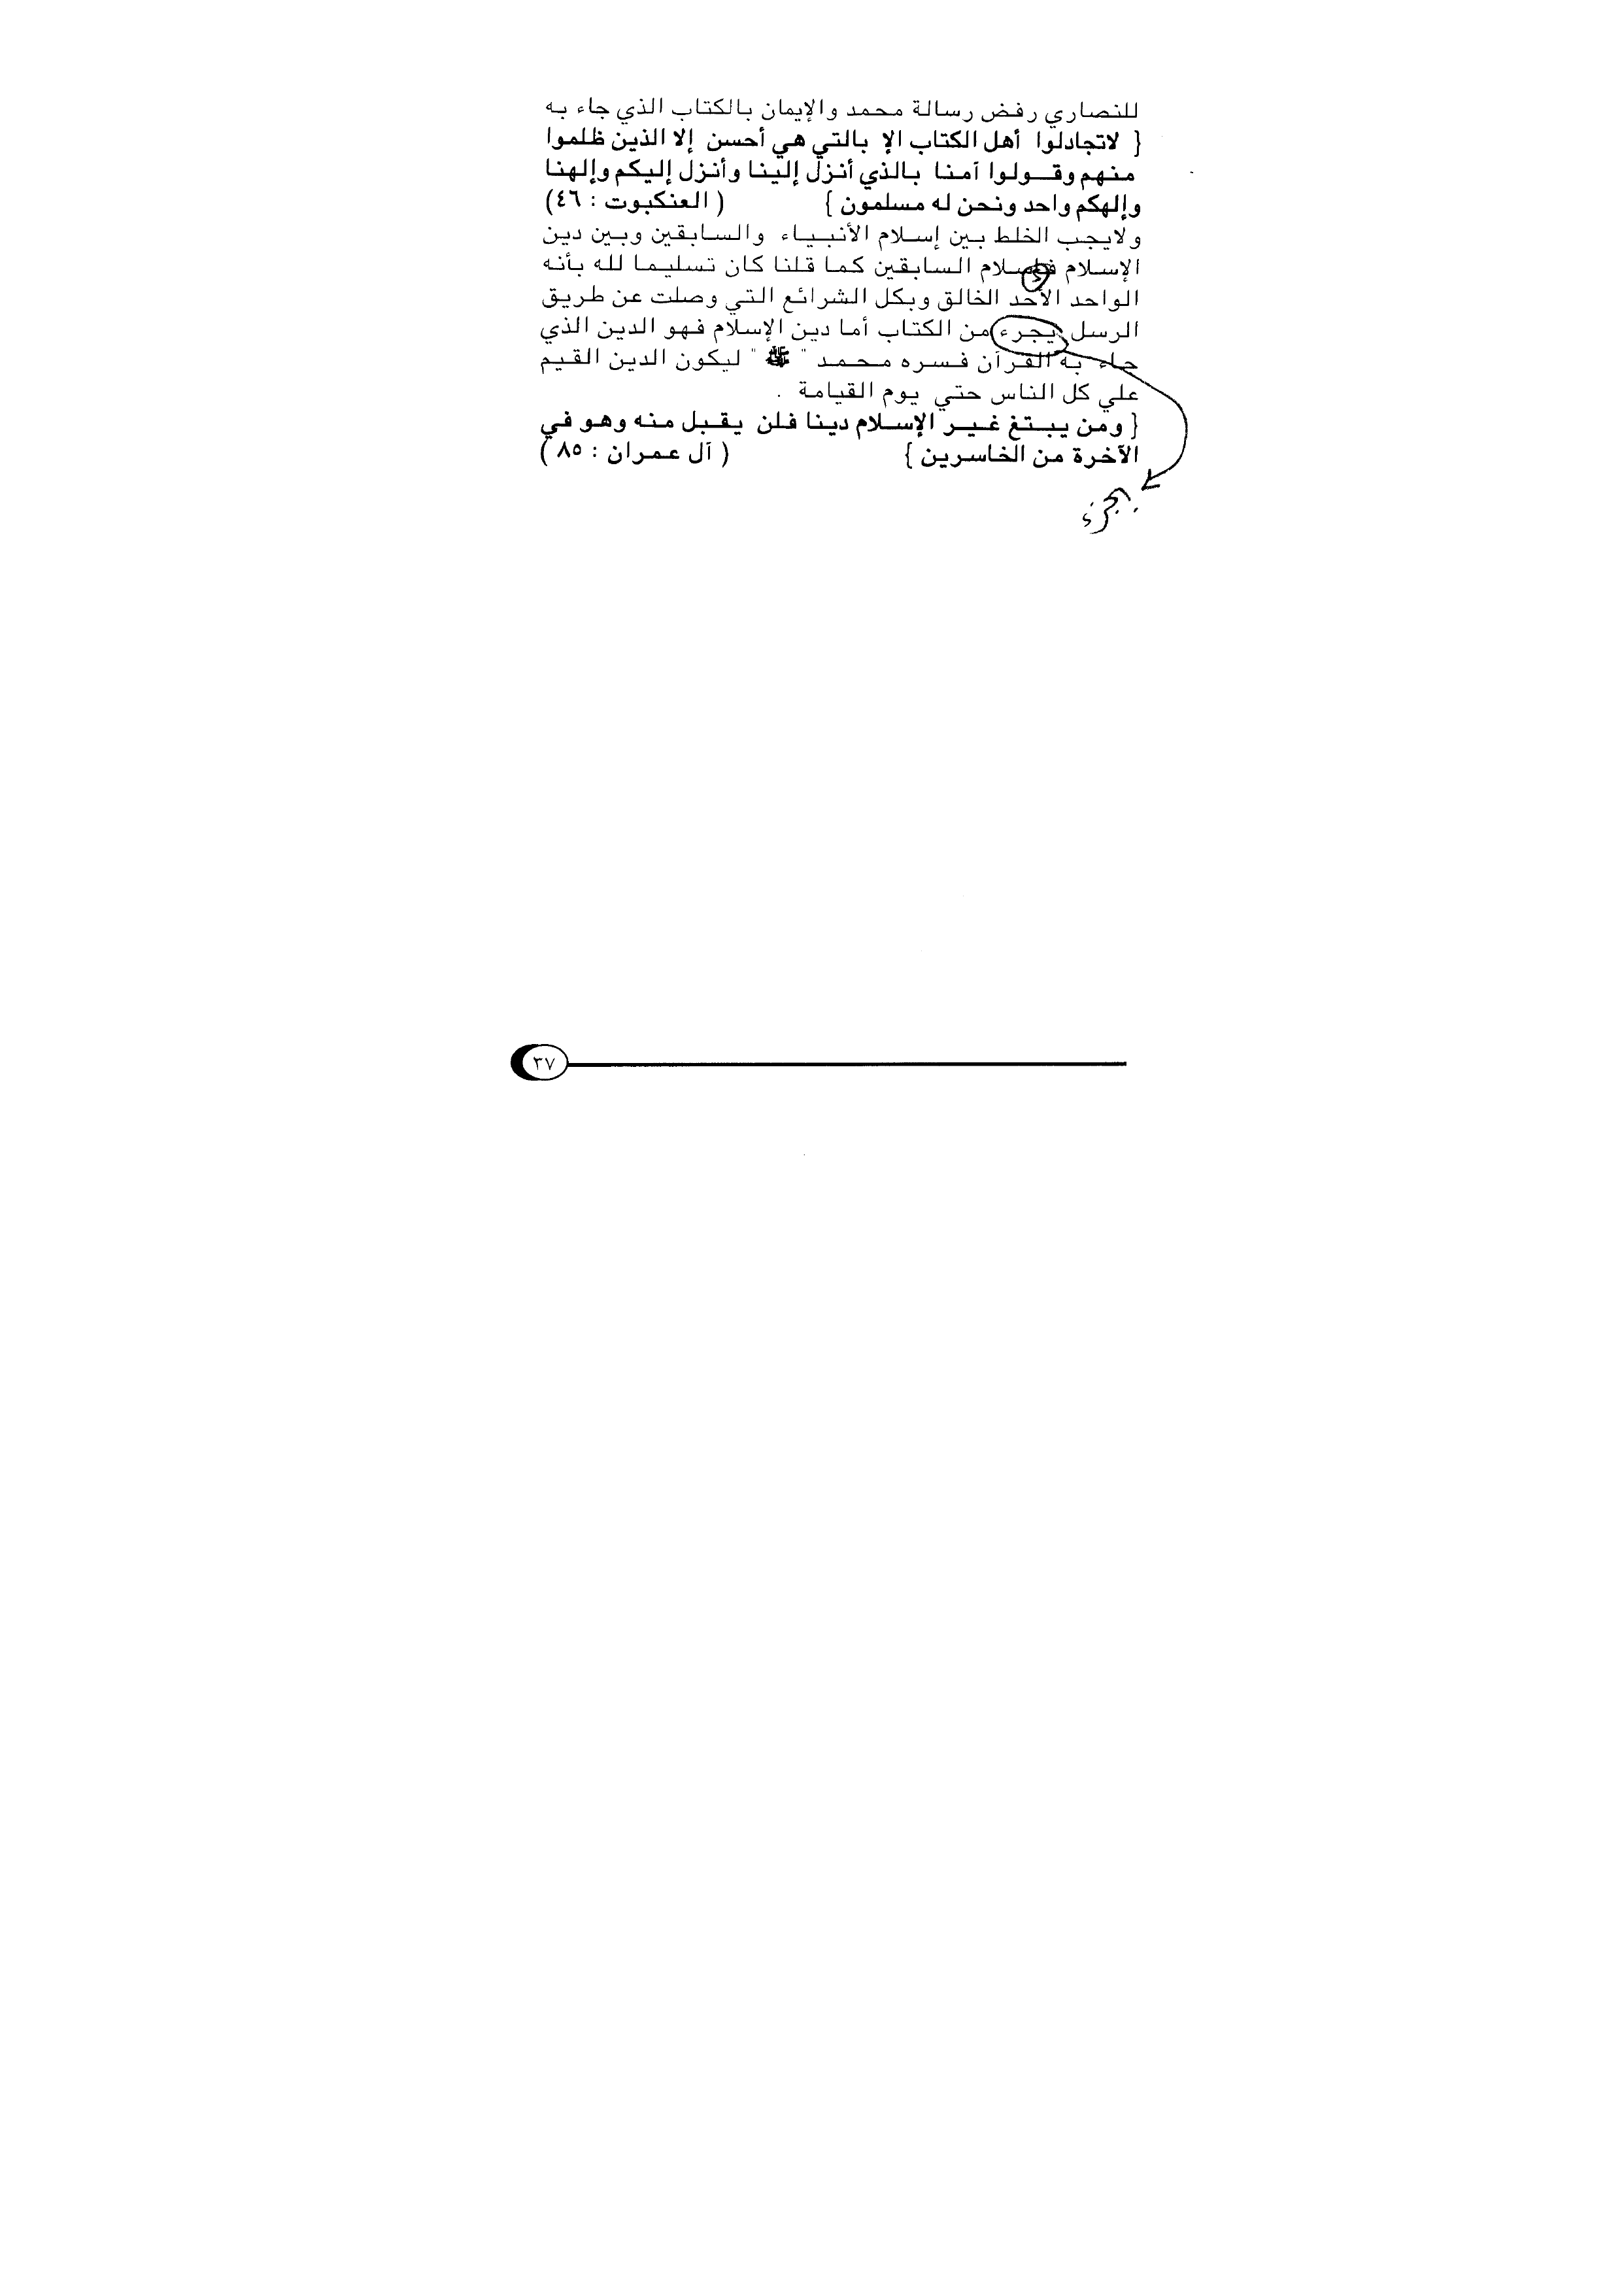 للنصاري رفض رسالة محمد والإيمان بالكتاب الذي جاء به
{ لاتجادلوا أهل الكتاب الإ بالتي هي أحسن إلا الذين ظلموا
منهم وقولوا آمنا بالذي أنزل إلينا وأنزل إليكم وإلهنا
وإلهكم واحد ونحن له مسلمون } ( العنكبوت : ٤٦)
ولايجب الخلط بين إسلام الأنبياء والسابقين وبين دين
الإسلام فإسلام السابقين كما قلنا كان تسليما لله بأنه
الواحد الأحد الخالق وبكل الشرائع التي وصلت عن طريق
الرسل يجرء من الكتاب أما دين الإسلام فهو الدين الذي
جاء به القرآن فسره محمد " ﷺ " ليكون الدين القيم
علي كل الناس حتي يوم القيامة .
{ ومن يبتغ غير الإسلام دينا فلن يقبل منه وهو في
الآخرة من الخاسرين } ( آل عمران : ٨٥ )
٣٧